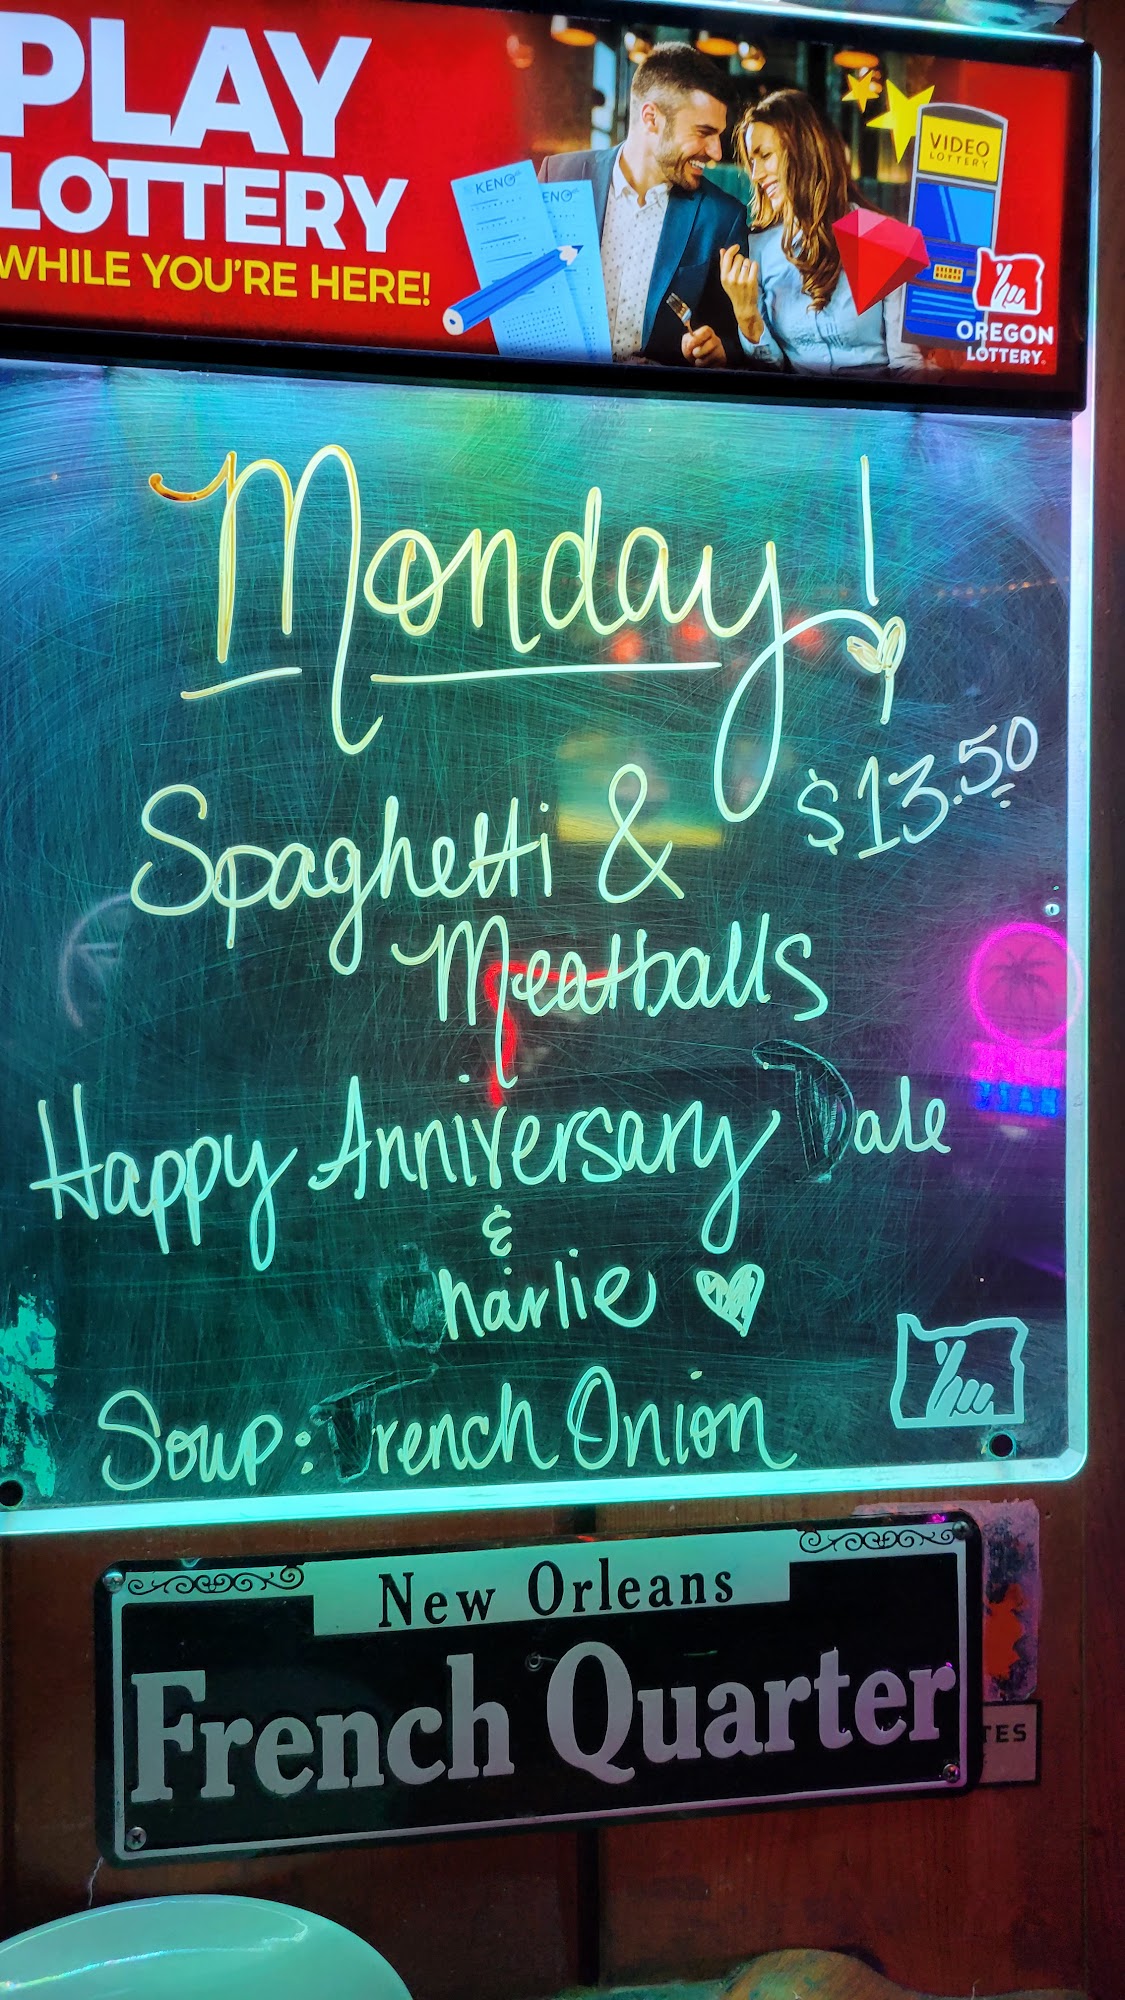 PLAY
LOTTERY
WHILE YOU'RE HERE!
KENO
KENO
VIDEO
LOTTERY
OREGON
LOTTERY
Monday!
$13.50
Spaghetti &
Meatballs
Happy Anniversary Dale
&
Charlie
Soup: French Onion
New Orleans
French Quarter
TES